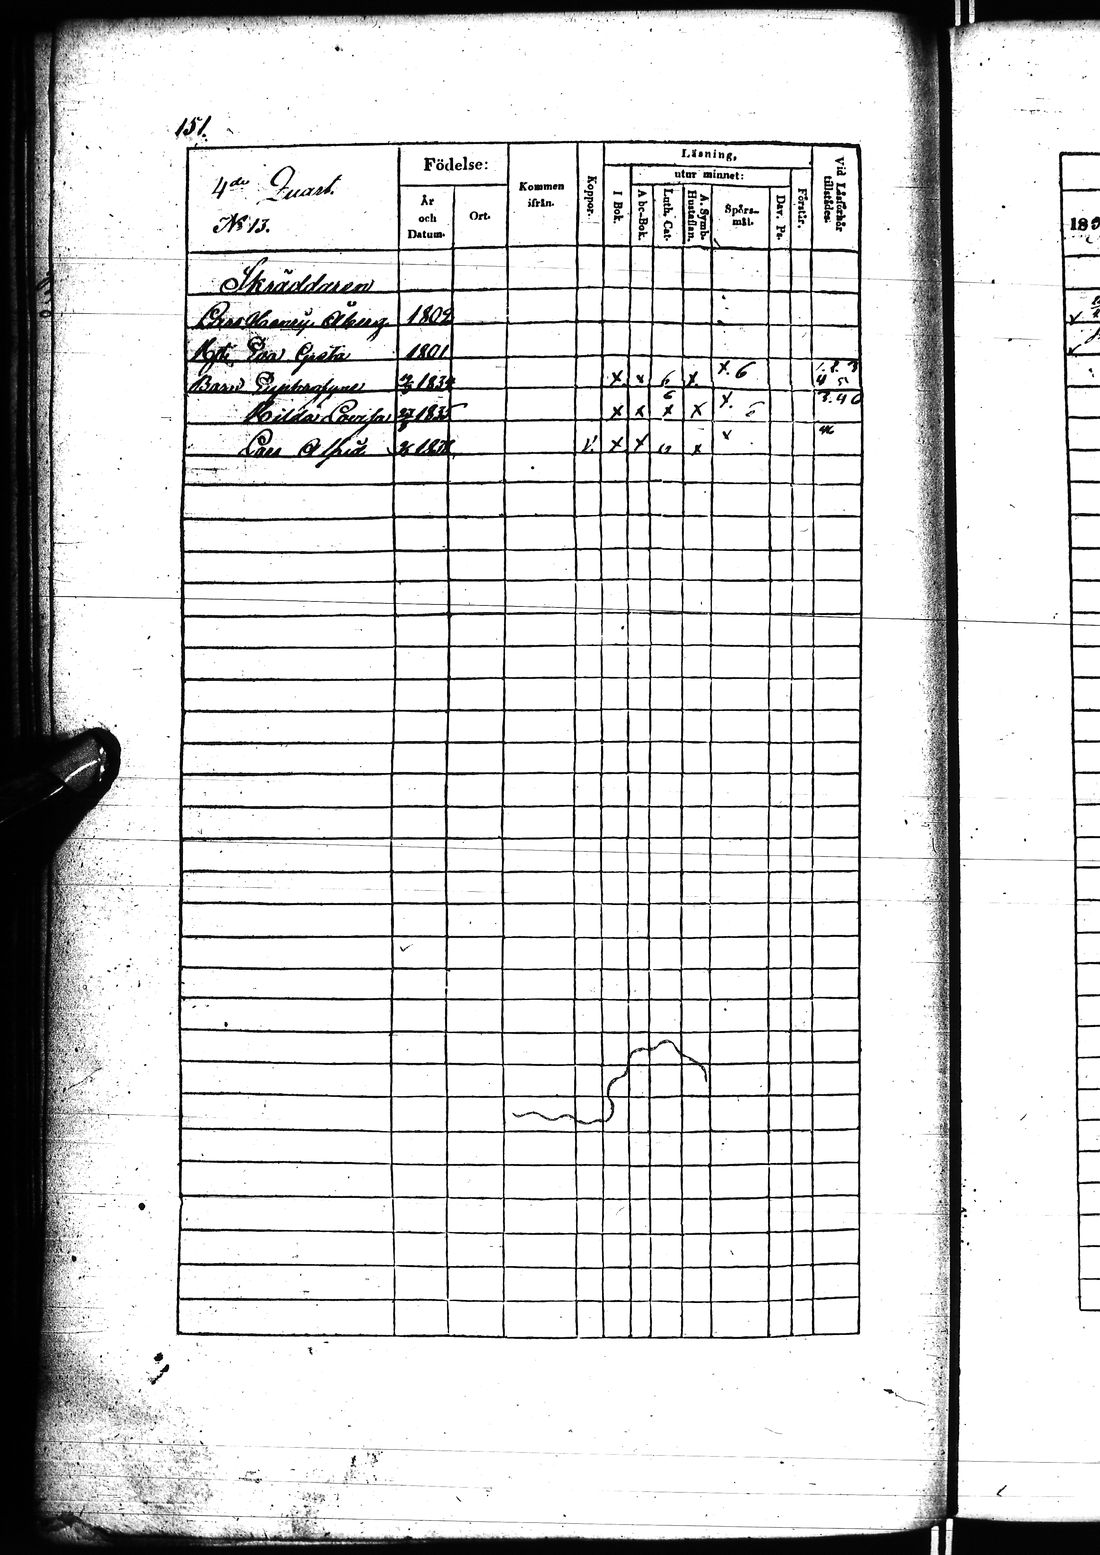 151.
4de Quart.
No 13.
Födelse:
År och Datum.
Ort.
Kommen ifrån.
Koppor.
Läsning,
utur minnet:
I Bok.
Abc-Bok.
Luth. Cat.
A. Symb. Hustaflan.
Spörs-mål.
Dav. Ps.
Förstår.
Vid Läsförhör tillstädes.
18
Skräddaren
Lars Åberg 1802
Eva Greta 1801
Barn 1834 x x 6 x x. 6 1. 2. 3
4 5
Hilda Lovisa 1835 x x x x x. 6 3. 4 6
Lars Alfrid 1838 V. x x x x